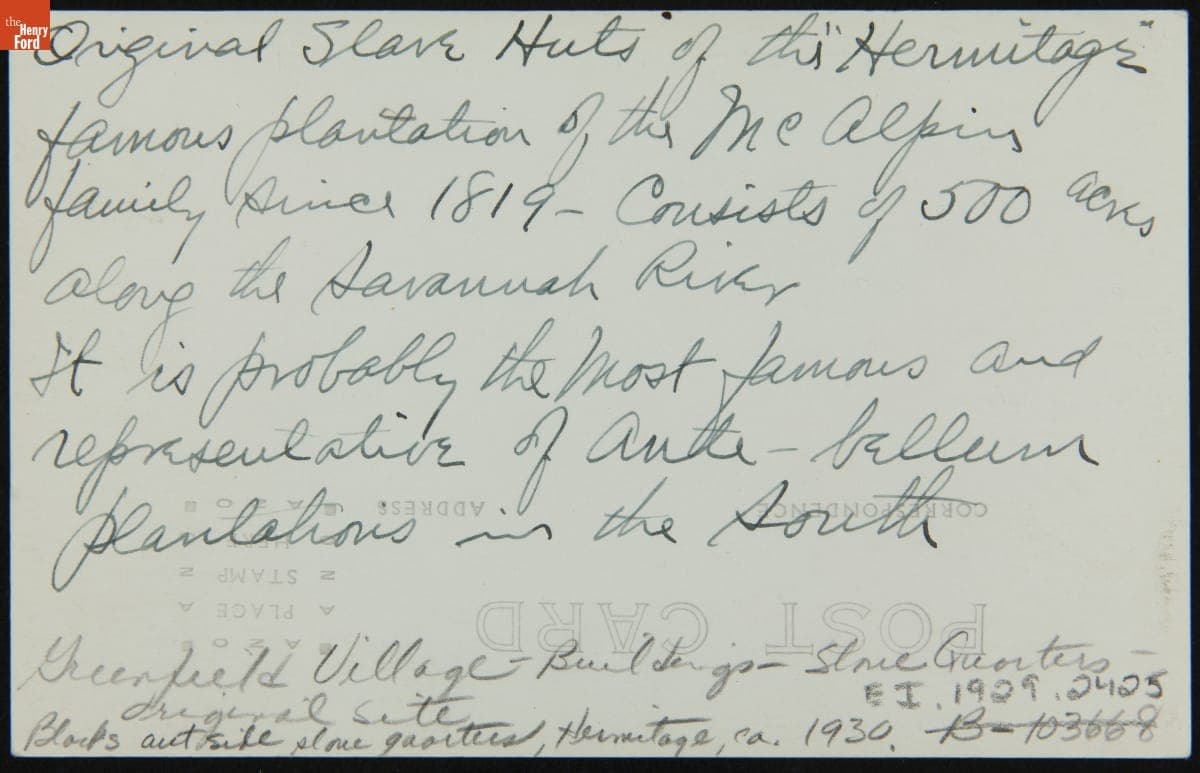 the
Henry
Ford
Original Slave Huts of the "Hermitage"
famous plantation of the McAlpin
family since 1819 - Consists of 500 acres
along the Savannah River
It is probably the most famous and
representative of ante-bellum
plantations in the South
CORRESPONDENCE ADDRESS
AZO
HERE
STAMP
PLACE
AZO
POST CARD
Greenfield Village - Buildings - Slave Quarters -
EI.1929.2425
original site
Blacks outside slave quarters, Hermitage, ca. 1930. B-103668